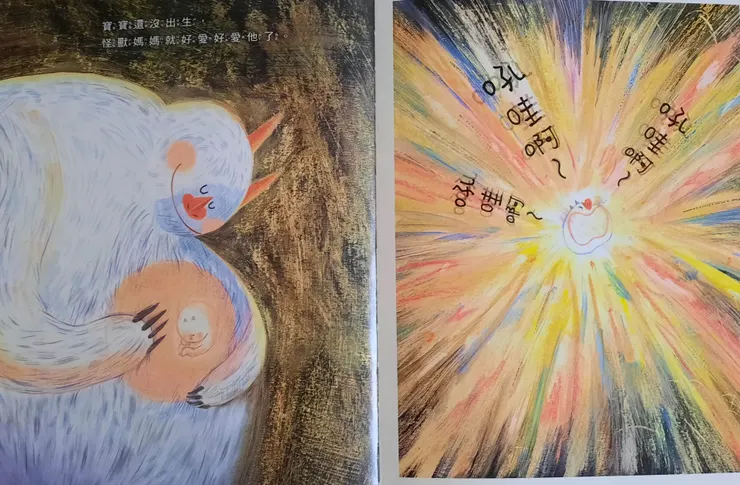 寶寶還沒出生，
怪獸媽媽就好愛好愛他了。
呱哇啊～
呱哇啊～
呱哇啊～